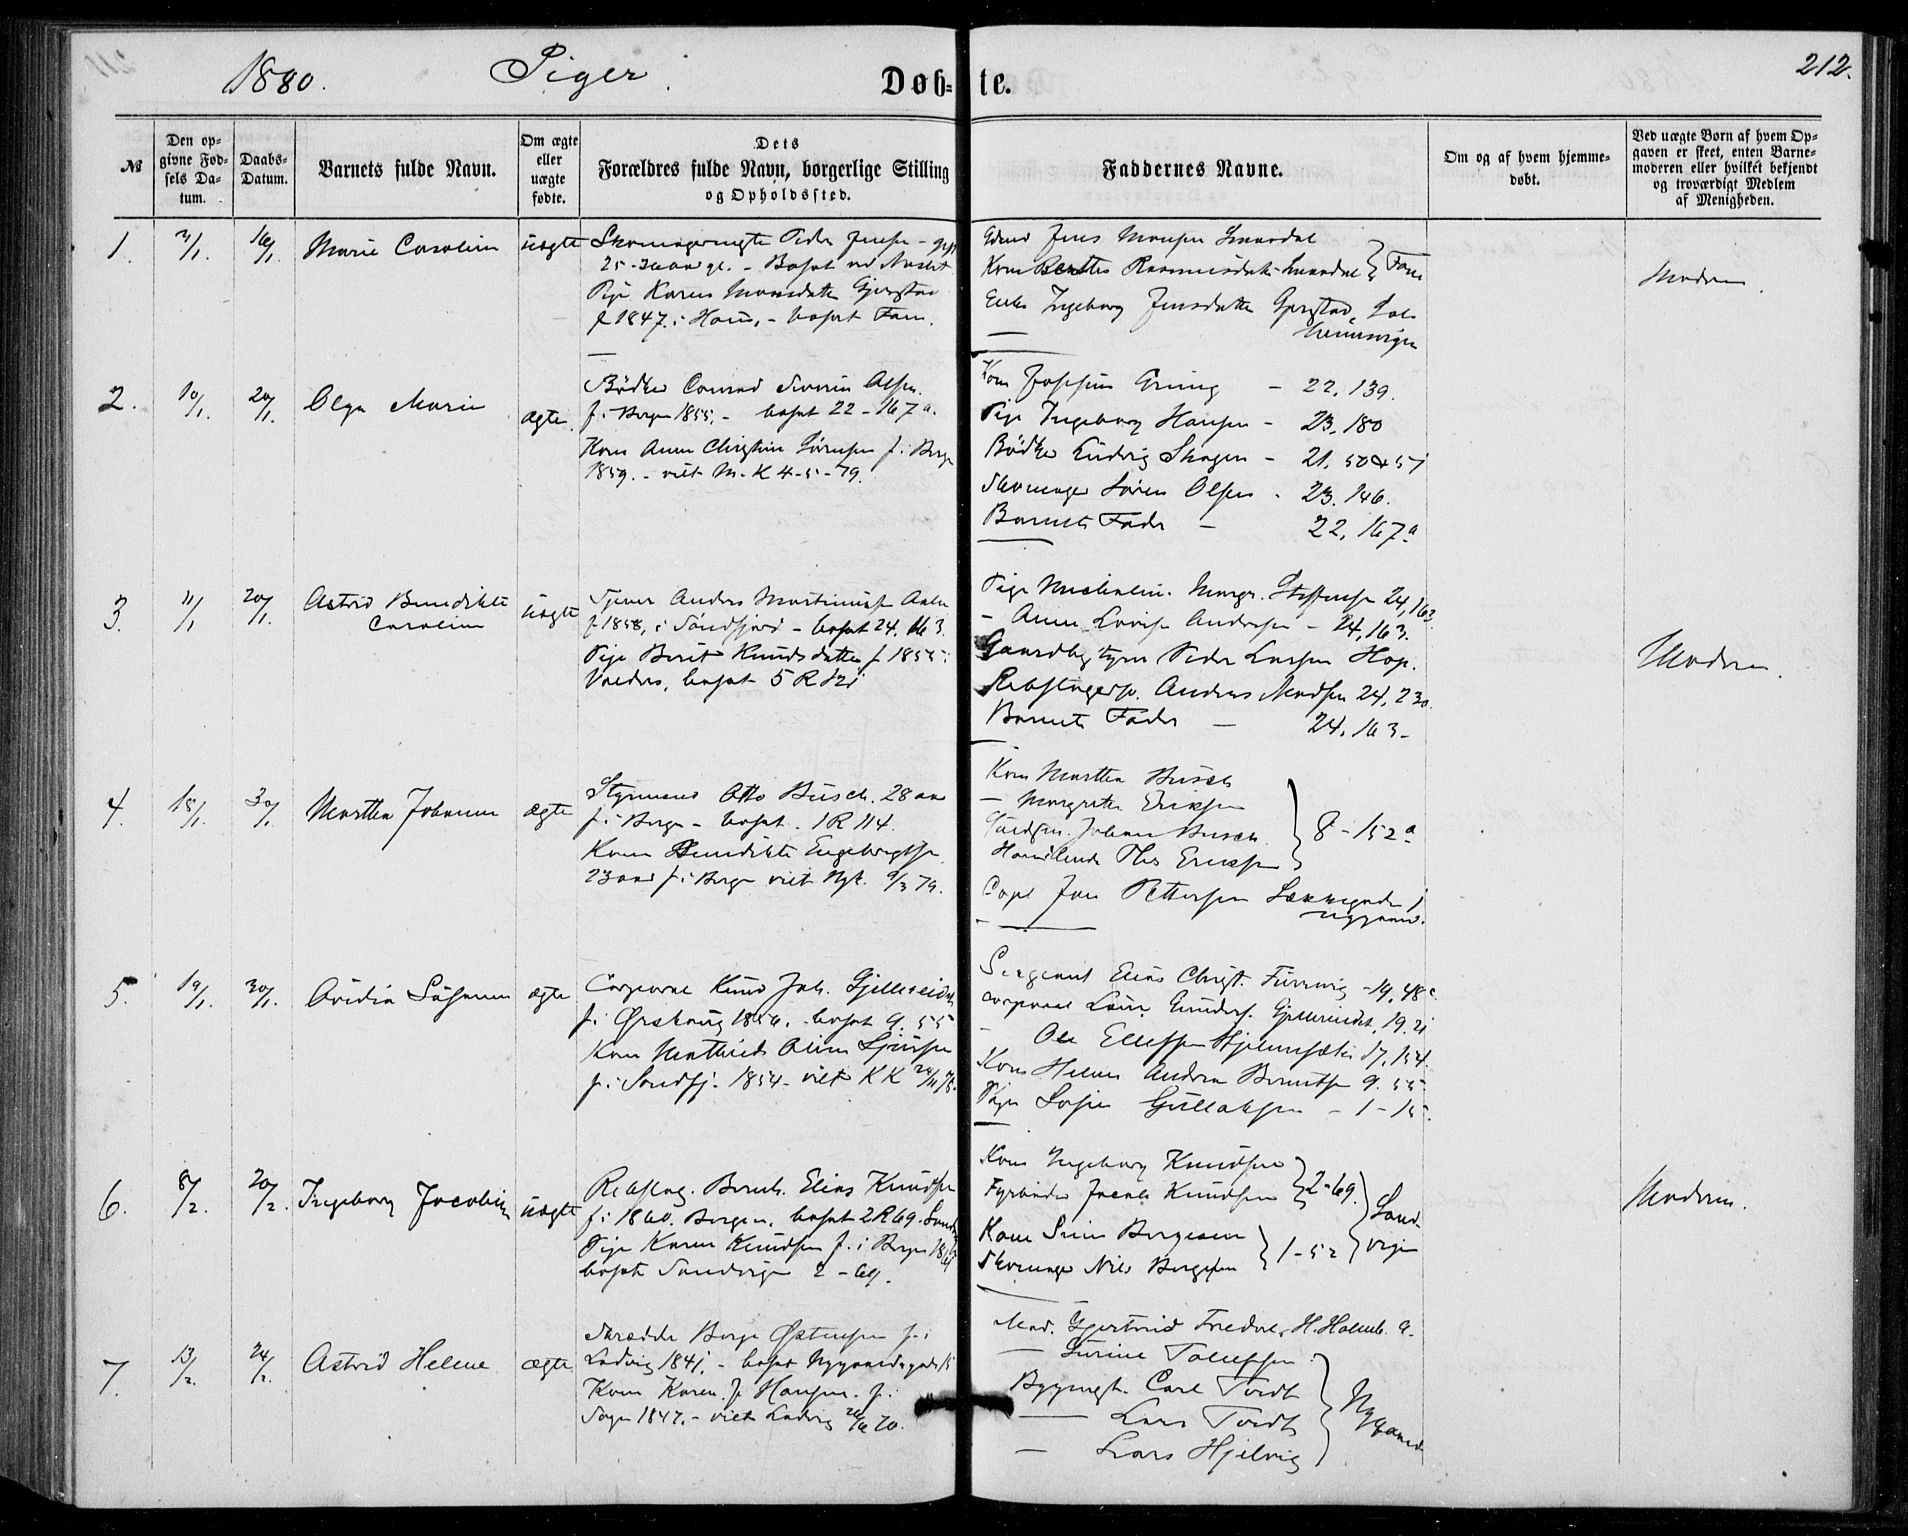 1880. Piger. Døb=te. 212.
№
Den opgivne Fødsels Datum.
Daabs-Datum.
Barnets fulde Navn.
Om ægte eller uægte fødte.
Dets Forældres fulde Navn, borgerlige Stilling og Opholdssted.
Faddernes Navne.
Om og af hvem hjemmedøbt.
Ved uægte Børn af hvem Opgaven er skeet, enten Barnemoderen eller hvilket bekjendt og troværdigt Medlem af Menigheden.
1. 3/1. 16/1. Marie Caroline uægte
Peder Jensen
25
Pige Karen Monsdatter Gjerstad
f 1847. i Hous, - bosat Fane.
Jens Monsen
Kone Berthe Rasmusdatter } Fane
Enke Ingeborg Jensdatter Gjerstad,
Moderen
2. 10/1. 20/1. Olga Marie ægte.
Bødker Conrad Severin Olsen.
f. i Bergen 1855. - bosat 22 - 167 a.
Kone Anne Christine Sørensen f. i Berge
1859. - viet M. K 4-5-79.
Kone Josefine Grung - 22, 139.
Pige Ingeborg Hansen - 23, 180
Bødker Ludvig Skagen - 21, 50 & 51
Skomager Søren Olsen - 23. 146.
Barnets Fader - 22, 167 a
3. 11/1 20/1. Astrid Benedikte
Caroline
uægte
Tjener Anders Martinusen
f. 1858, i Søndfjord - bosat 24. 163.
Pige Berit Knudsdatter f 1855 i
Valders, bosat 5 R 121
Pige Michaline Margr. Steffensen 24, 163.
- Anne Lovise Andersen - 24, 163.
Gaardbestyrer Peder Larsen Hop.
Rebslagersv. Anders Madsen 24, 230.
Barnets Fader - 24, 163 -
Moderen
4. 18/1. 30/1. Marthe Johanne ægte
Styrmand Otto Busch. 28 aar
f. i Berge - bosat. 1 R 114.
Kone Benedikte Engebrigtsen
23 aar f. i Berge viet Nyk. 9/3 79.
Kone Marthe Busch
- Margrethe Eriksen
Johan Busch
Ths Ericksen } 8 - 152 a
Capt Jan Pettersen
5. 19/1. 30/1. Ovidia Susanne ægte
Corporal Knud Joh. Gjelleseidet
f. i Ørskoug 1856. - bosat 9. 55
Kone Mathilde Oline Sjursen
f. i Søndfj. 1854 - viet KK
Sergeant Elias Christ. Furevig - 19, 48 c.
Corporal 19. 21
- Ole Ellefsen Hjelmesæter 17, 154.
Kone Helene Andrea Berntsen 9. 55
Pige Sofie Gullaksen - 1 - 15.
6. 8/2. 20/2. Ingeborg Jacobine uægte
Rebslag. Bernh. Elias Knudsen
f. i 1860. Bergen, bosat 2 R 69. Sandv
Pige Karen Knudsen f. i Bergen
bosat Sandvigen 2 - 69.
Kone Ingeborg Knudsen
Fyrbøder Jacob Knudsen } 2 - 69.
Kone Børgesen
Skomager Nils Børgesen } 1 - 52 } Sandvigen
Moderen.
7. 13/2. 24/2. Astrid Helene ægte
Skrædder Børge Østensen f. i
Ladvig 1841. - bosat Nygaardsgade 15
Kone Karen J. Hansen. f. i
Sogn 1847. - viet Ladvig 20/6 70.
Mad. Gjertrud Fredal, H. Holmb. 9.
- Turine Tollefsen.
Bygmgt. Carl Tvedt
- Lars Tvedt
- Lars Hjelvig } Nygaard